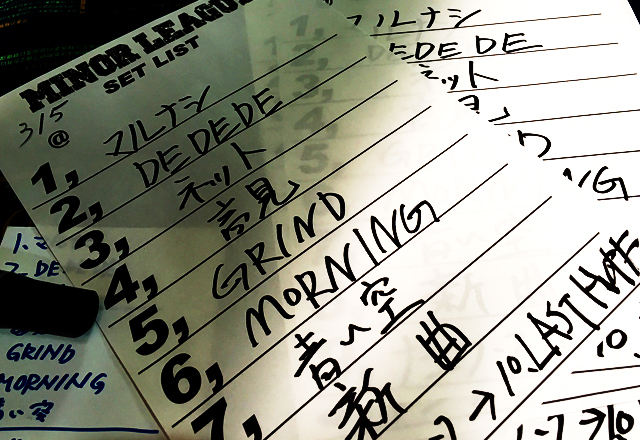 MINOR LEAGU
SET LIST
3/5
@
1, マルナシ
2, DEDEDE
3, ネット
4,
5, GRIND
6, MORNING
7, 青い空
新曲
→ 10. LAST HOPE
マルナシ
DEDEDE
ネット
NG
10
-7 → 10
1. マ
2. DE
GRIND
MORNING
青い空